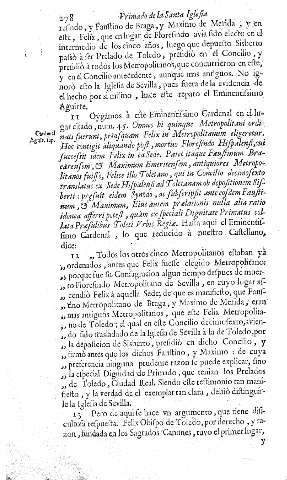 278 Primado de la Santa Iglesia
resindo, y Faustino de Braga, y Maximo de Merida; y en
este, Felix, que en lugar de Floresindo avia sido electo en el
intermedio de los cinco años, luego que depuesto Sisberto
passò à ser Prelado de Toledo, presidiò en el Concilio, y
presidiò à todos los Metropolitanos, que concurrieron en este,
y en el Concilio antecedente, aunque mas antiguos. No ig-
norò esto la Iglesia de Sevilla, pues fuera de la evidencia de
el hecho por si mismo, hace este reparo el Eminentissimo
Aguirre.
11 Oygamos à este Eminentissimo Cardenal en el lu-
gar citado, num. 45. Omnes hi quinque Metropolitani ordi-
nati fuerunt, priusquam Felix in Metropolitanum eligeretur.
Hoc contigit aliquando post, mortuo Floresindo Hispalensi, cui
successit idem Felix in ea Sede. Patet itaque Faustinum Bra-
carensem, & Maximum Emeritensem, antiquiores Metropo-
litanos fuisse, Felice illo Toletano, qui in Concilio decimosexto
translatus ex Sede Hispalensi ad Toletanam ob depositionem Sis-
berti: præfuit eidem Synodo, ac subscripsit ante eosdem Faustinum,
& Maximum, Eius autem prælationis nulla alia ratio
idonea afferri potest, quàm ex speciali Dignitate Primatus col-
lata Præsulibus Toleti Vrbis Regiæ. Hasta aqui el Eminentis-
simo Cardenal, lo que reducido à nuestro Castellano,
dice:
12 ,, Todos los otros cinco Metropolitanos estaban yà
,, ordenados, antes que Felix fuesse elegido Metropolitano:
,, porque fue su Consagracion algun tiempo despues de muer-
,, to Floresindo Metropolitano de Sevilla, en cuyo lugar as-
,, cendiò Felix à aquella Sede; de que es manifiesto, que Faus-
,, tino Metropolitano de Braga, y Maximo de Merida, eran
,, mas antiguos Metropolitanos, que este Felix Metropolita-
,, no de Toledo; el qual en este Concilio decimosexto, avien-
,, do sido trasladado de la Iglesia de Sevilla à la de Toledo, por
,, la deposicion de Sisberto, presidiò en dicho Concilio, y
,, firmò antes que los dichos Faustino, y Maximo: de cuya
,, preferencia ninguna prudente razon se puede explicar, sino
,, la especial Dignidad de Primado, que tenian los Prelados
,, de Toledo, Ciudad Real. Siendo este testimonio tan mani-
fiesto, y la verdad de el exemplar tan clara, debiò distinguir-
le la Iglesia de Sevilla.
13 Pero de aqui se hace un argumento, que tiene difi-
cultosa respuesta. Felix Obispo de Toledo, por derecho, y ra-
zon, fundada en los Sagrados Canones, tuvo el primer lugar,
y
Cardenal